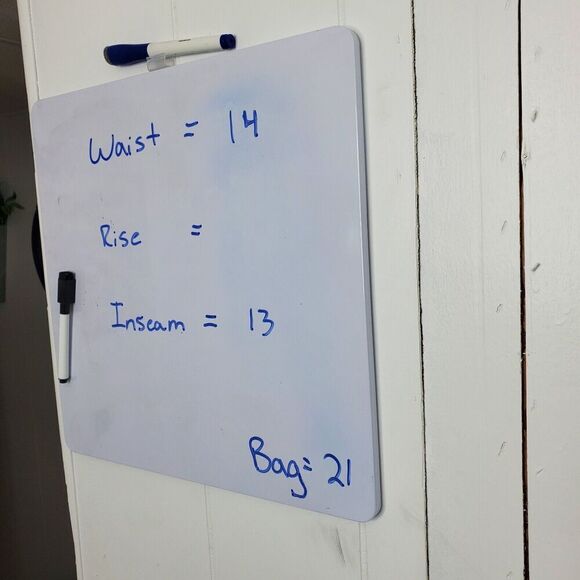 Waist = 14
Rise =
Inseam = 13
Bag = 21